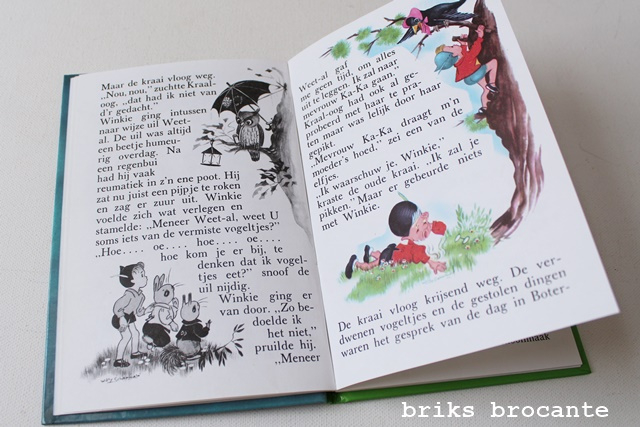 Maar de kraai vloog weg.
„Nou, nou,” zuchtte Kraal-
oog, „dat had ik niet van
d'r gedacht.”
Winkie ging intussen
naar wijze uil Weet-
al. De uil was altijd
een beetje humeu-
rig overdag. Na
een regenbui
had hij vaak
reumatiek in z'n ene poot. Hij
zat nu juist een pijpje te roken
en zag er zuur uit. Winkie
voelde zich wat verlegen en
stamelde: „Meneer Weet-al, weet U
soms iets van de vermiste vogeltjes?”
„Hoe.... oe.... hoe.... oe....
hoe kom je er bij, te
denken dat ik vogel-
tjes eet?” snoof de
uil nijdig.
Winkie ging er
van door. „Zo be-
doelde ik
het niet,”
pruilde hij.
„Meneer
Weet-al gaf
me geen tijd, om alles
uit te leggen. Ik zal naar
mevrouw Ka-Ka gaan.”
Kraal-oog had ook al ge-
probeerd met haar te pra-
ten maar was lelijk door haar
gepikt.
„Mevrouw Ka-Ka draagt m'n
moeder's hoed.” zei een van de
elfjes.
„Ik waarschuw je, Winkie,”
kraste de oude kraai. „Ik zal je
pikken.” Maar er gebeurde niets
met Winkie.
De kraai vloog krijsend weg. De ver-
dwenen vogeltjes en de gestolen dingen
waren het gesprek van de dag in Boter-
briks brocante